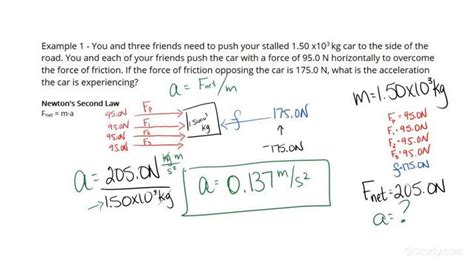 Example 1 - You and three friends need to push your stalled 1.50 x10³ kg car to the side of the
road. You and each of your friends push the car with a force of 95.0 N horizontally to overcome
the force of friction. If the force of friction opposing the car is 175.0 N, what is the acceleration
the car is experiencing?
a = Fnet/m
m=1.50x10³kg
Newton's Second Law
Fnet = m·a
95.0N Fp
95.0N F1
95.0N F2
95.0N F3
kg
f
175.0N
↑
-175.0N
Fp=95.0N
F1=95.0N
F2=95.0N
F3=95.0N
f=-175.0N
Fnet=205.0N
a=?
a= 205.0N kg·m/s²
→1.50x10³kg
a= 0.137 m/s²
Study.com